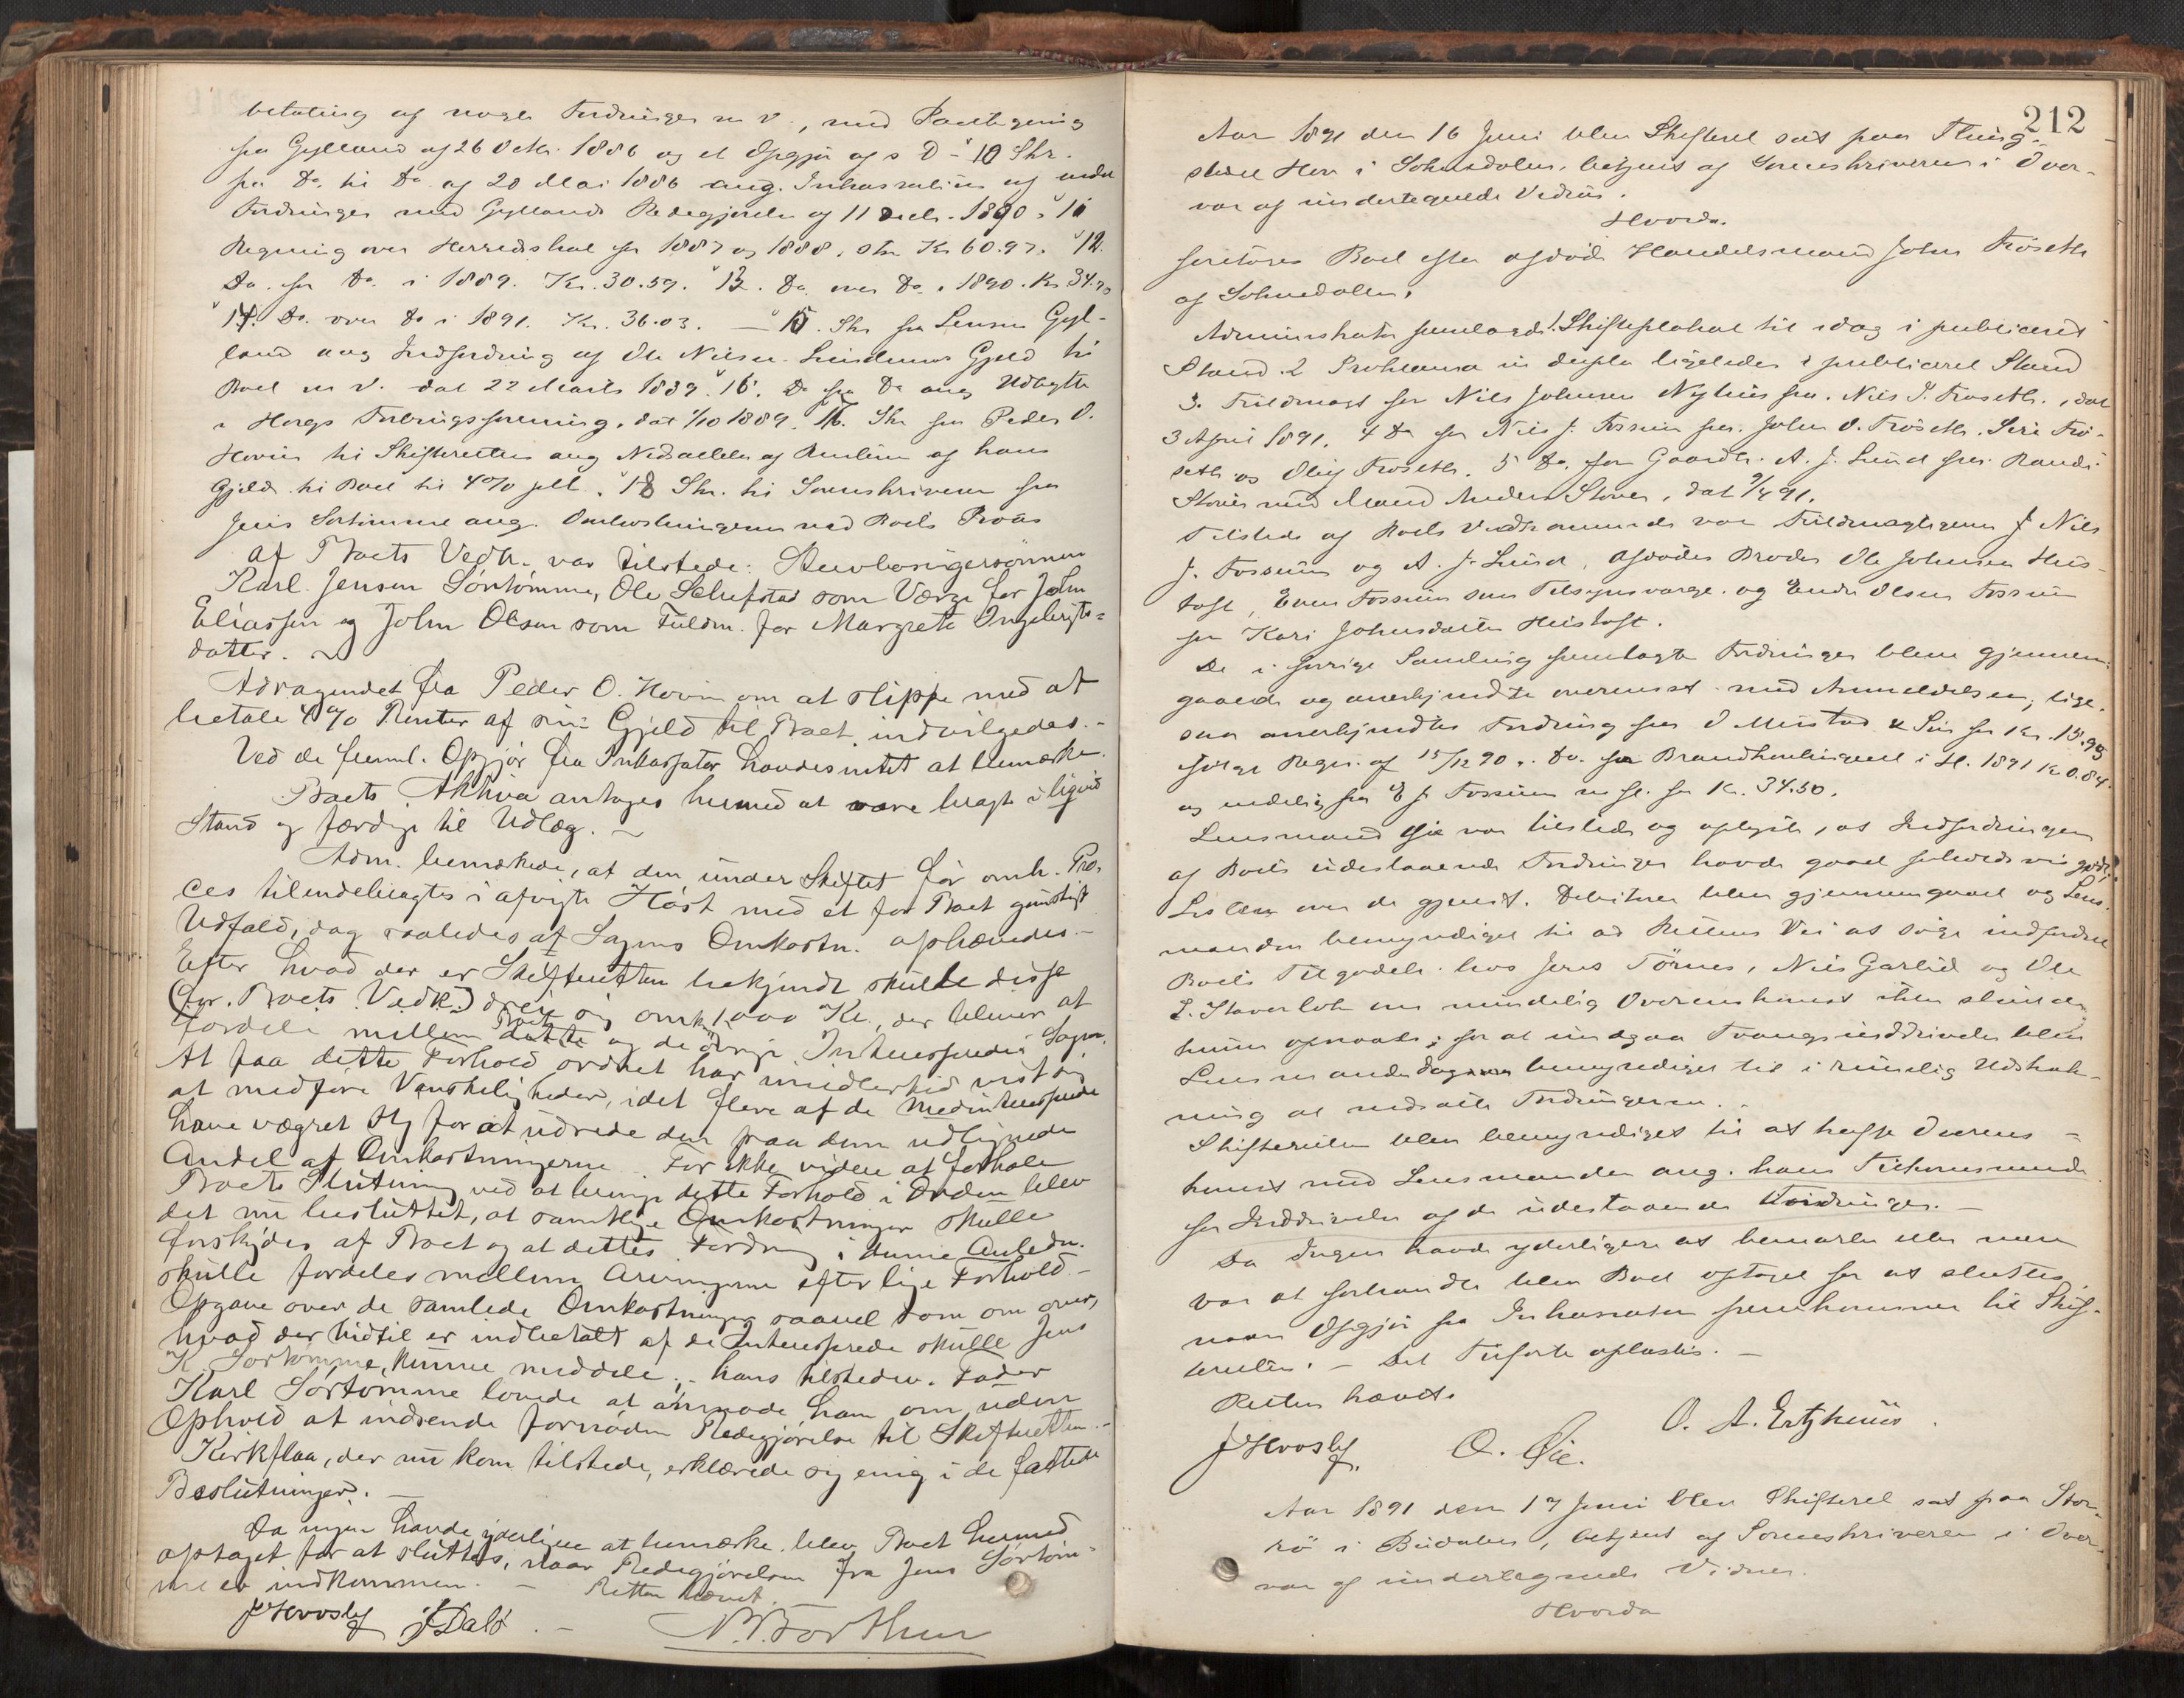 betaling af nogle Fordringer m v., med Paategning
fra Gylland af 26 Octbr. 1886 og et Opgjør af s D - 10 Skr.
fra Do. til Do. af 20 Mai 1886 ang. Inkassation af andre
Fordringer med Gyllands Redegjørelse af 11 Decbr. 1890. 11
Regning over Herredsskat for 1887 og 1888, stor Kr 60.97. 12.
Do. for Do. i 1889. Kr. 30.59. 13. Do. over Do. i 1890. Kr 34.
14. Do. over Do i 1891. Kr. 36.03. — 15. Skr fra Lensm Gyl-
land ang Indfordring af Ole Nilsen Gjeld til
Boet m v. dat 22 Marts 1889. 16. Do fra Do ang Udlagte
i Horgs Forbrugsforening, dat 1/10 1889. 17. Skr fra Peder O.
Hovin til Skifteretten ang Nedsættelse af Renten af hans
Gjeld til Boet til 4% . 18 Skr. til Sorenskriveren fra
Jens Sørtømme ang. Omkostningerne ved Boets Proces
Af Boets Vedk. var tilstede:
Karl Jensen Sørtømme, Ole som Værge for John
Eliassen og John Olsen som Fuldm. for Margrete Ingebrigts=
datter.
Adragendet fra Peder O. Hovin om at slippe med at
betale 4% Renter af sin Gjeld til Boet indvilgedes.-
Ved de freml. Opgjør fra Inkassator havdes intet at bemærke.
Boets Aktiva antages hermed at være bragt i liqvid
Stand og færdige til Udlæg. -
Adm. bemærkede, at den under Skiftet før omh. Pro-
ces tilendebragtes i afvigte Høst med et for Boet gunstigt
Udfald, dog saaledes at Sagens Omkostn. ophævedes.-
Efter hvad der er Skifteretten bekjendt skulle disse
(for Boets Vedk.) dreie sig omkr 1000 Kr., der bliver at
fordele mellem Boet og de øvrige Interesserede i Sagen.
At faa dette Forhold ordnet har imidlertid vist sig
at medføre Vanskeligheder, idet flere af de Medinteresserede
have vægret sig for at udrede den paa dem udlignede
Andel af Omkostningerne. For ikke videre at forhale
Boets Slutning ved at bringe dette Forhold i Orden blev
det nu besluttet, at samtlige Omkostninger skulle
forskydes af Boet og at dettes Fordring i denne Anledn.
skulle fordeles mellem Arvingerne efter lige Forhold.-
Opgave over de samlede Omkostninger saavel som om over,
hvad der hidtil er indbetalt af de Interesserede skulle Jens
K. Sørtømme, kunne meddele; - hans tilstedev. Fader
Karl Sørtømme lovede at anmode ham om, uden
Ophold at indsende fornøden Redegjørelse til Skifteretten.-
Kirkflaa, der nu kom tilstede, erklærede sig enig i de fattede
Beslutninger. -
Da ingen havde yderligere at bemærke blev Boet hermed
optaget for at sluttes, naar Redegjørelsen fra Jens Sørtøm-
me er indkommen. - Retten hævet.
J Hvoslef J Dalø. -
212
Aar 1891 den 16 Juni blev Skifteret sat paa Thing-
stedet Hov i Soknedalen, betjent af Sorenskriveren i Over-
vær af undertegnede Vidner.
Hvorda
foretoges Boet efter afdøde Handelsmand John Frøseth
af Soknedalen.
Administrator fremlagde 1. Skifteplakat til idag i publiceret
Stand 2 Proklama in duplo ligeledes i publiceret Stand
3. Fuldmagt for Nils Johnsen Nyhus fra Nils J. Frøseth, dat
3 April 1891. 4 Do for Nils J. Fossum fra John O. Frøseth, Siri Frø-
seth og Oliv Frøseth. 5 Do. for Gaardbr. A. J. Lund fra Randi
Støren med Mand Anders Støren, dat 9/4 91.
Tilstede af Boets Vedkommende var Fuldmægtigerne Nils
J. Fossum og A. J. Lund, Afdødes Broder Ole Johnsen
, Even Fossum som Tilsynsværge og Endre Olsen Fossum
for Kari Johnsdatter .
De i forrige Samling fremlagte Fordringer bleve gjennem-
gaaede og anerkjendte overensst. med Anmeldelsen; lige-
saa anerkjendtes Fordring fra O Mustad & Søn for Kr. 13.95
ifølge Regn. af 15/12 90. Do. for Brandkontingent i 1891 Kr 0.84.
og endelig fra E J. Fossum for Kr. 34.50.
Lensmand Øie var tilstede og oplyste, at Indfordringen
af Boets udestaaende Fordringer havde gaaet forholdsvis godt.
Listen over de gjenst. Debitorer blev gjennemgaaet og Lens-
manden bemyndiget til ad Rettens Vei at søge indfordret
Boets Tilgodeh. hos Jens Tørnes, Nils Garlid og Ole
om mindelig Overenskomst ikke skulde
kunne opnaaes; for at undgaa Tvangsinddrivelse blev
Lensmanden dog bemyndiget til i rimelig Udstræk-
ning at nedsætte Fordringerne.
Skifteretten blev bemyndiget til at træffe Overens-
komst med Lensmanden ang. hans Tilkommende
for Inddrivelse af de udestaaende Fordringer. -
Da Ingen havde yderligere at bemærke eller mere
var at forhandle blev Boet optaget for at sluttes
naar Opgjør fra Inkassator fremkommer til Skif-
teretten. - Det Tilførte oplæstes. -
Retten hævet.
J Hvoslef O. Øie. O. A. Ertzhuus.
Aar 1891 den 17 Juni blev Skifteret sat paa Stor-
rø i Budalen, betjent af Sorenskriveren i Over-
vær af undertegnede Vidner.
Hvorda